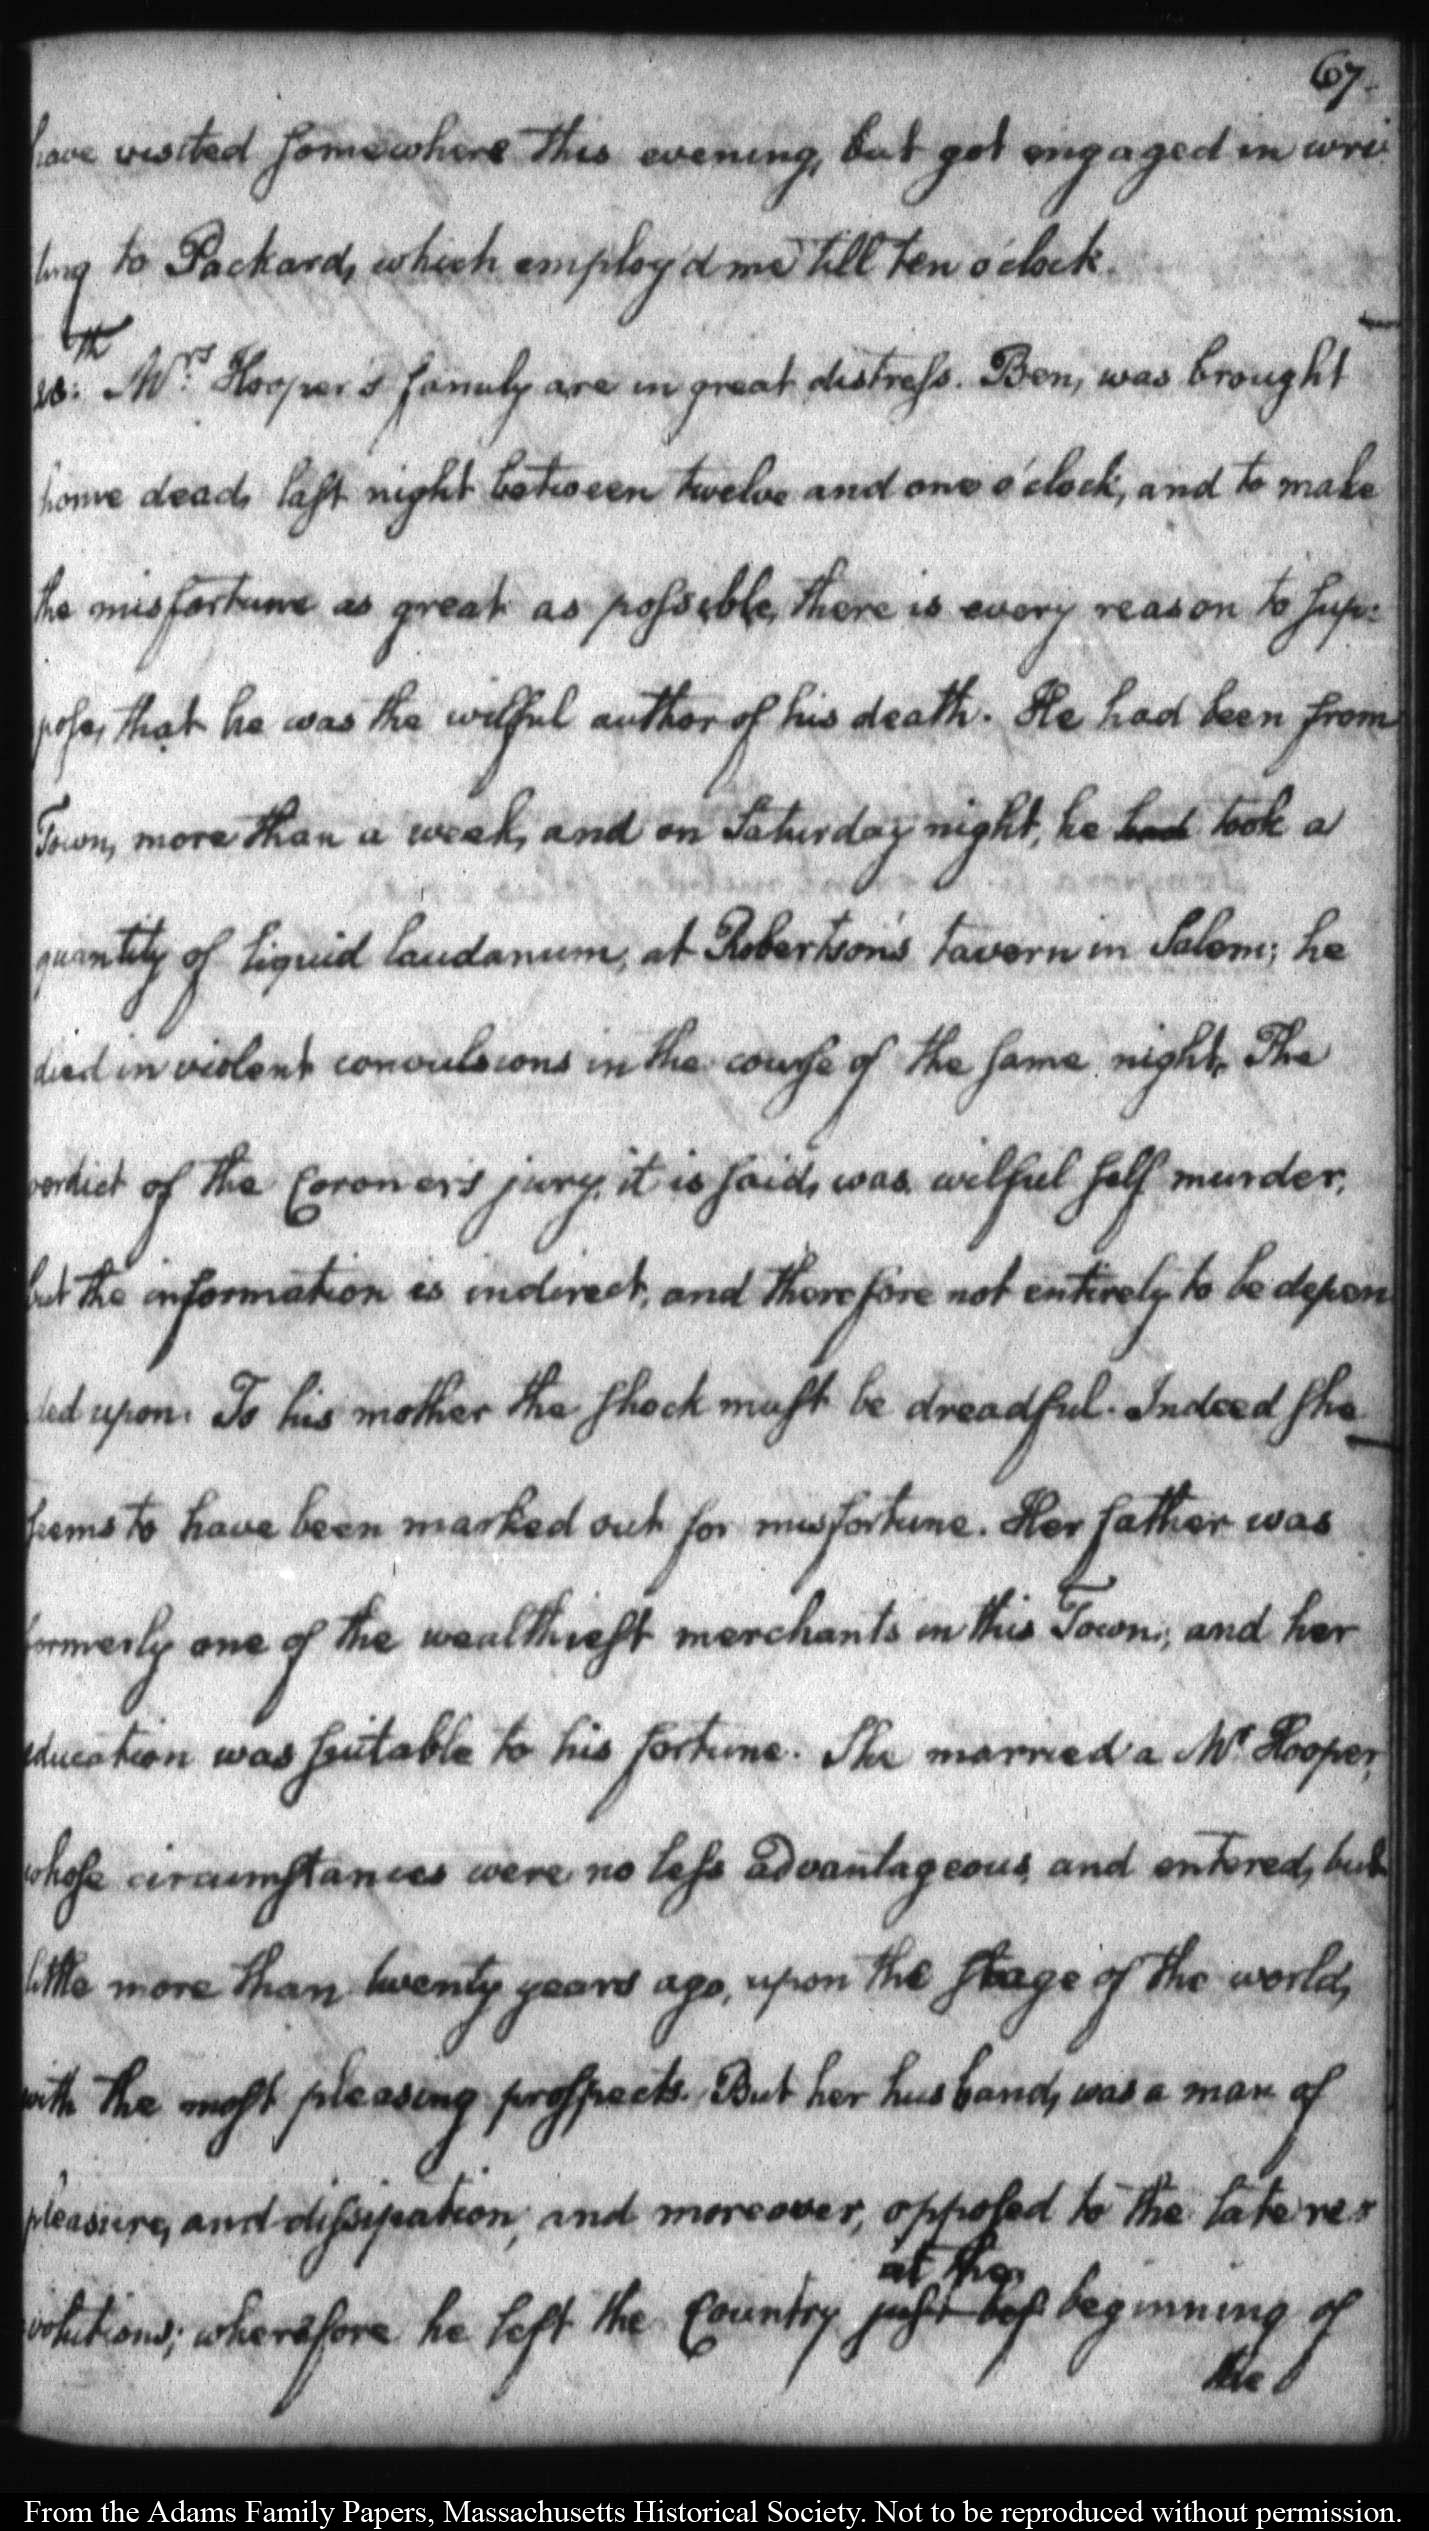 67.
have visited somewhere this evening, but got engaged in wri
ting to Packard, which employ'd me till ten o'clock.
28:th Mrs. Hooper's family are in great distress. Ben, was brought
home dead, last night between twelve and one o'clock, and to make
the misfortune as great as possible, there is every reason to sup:
pose, that he was the wilful author of his death. He had been from
Town, more than a week, and on Saturday night, he had took a
quantity of liquid laudanum, at Robertson's tavern in Salem; he
died in violent convulsions in the course of the same night. The
verdict of the Coroner's jury, it is said, was wilful self murder,
but the information is indirect, and therefore not entirely to be depen
ded upon. To his mother the shock must be dreadful. Indeed she
seems to have been marked out for misfortune. Her father was
formerly one of the wealthiest merchants in this Town; and her
education was suitable to his fortune. She married a Mr Hooper,
whose circumstances were no less advantageous, and entered, but
little more than twenty years ago, upon the stage of the world,
with the most pleasing prospects. But her husband, was a man of
pleasure, and dissipation, and moreover, opposed to the late re:
at the
volutions; wherefore he left the Country just bef beginning of
the
From the Adams Family Papers, Massachusetts Historical Society. Not to be reproduced without permission.